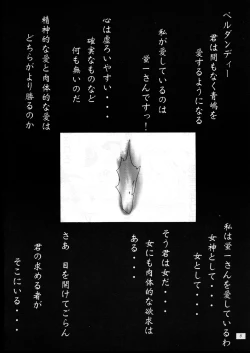 ベルダンディー
君は間もなく青嶋を
愛するようになる
私が愛しているのは
螢一さんですっ！
心は虚ろいやすい・・・
確実なものなど
何も無いのだ
精神的な愛と肉体的な愛は
どちらがより勝るのか
私は螢一さんを愛しているわ
女神として・・・・
女として・・・・
そう君は女だ・・・
女にも肉体的な欲求は
ある・・・・
さあ　目を開けてごらん
君の求める者が
そこにいる・・・・